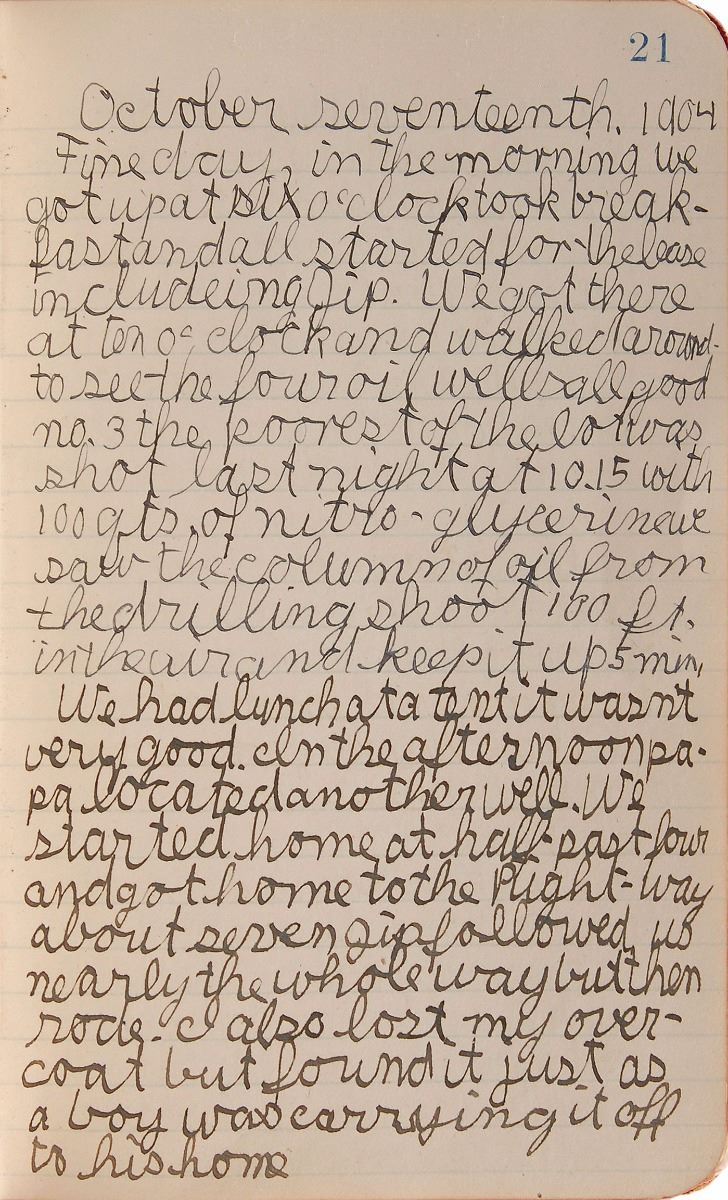 21
October seventeenth. 1904
Fine day, in the morning we
got up at six o'clock took break-
fast and all started for the lease
includeing Jip. We got there
at ten o'clock and walked around
to see the four oil wells all good
no. 3 the poorest of the lot was
shot last night at 10.15 with
100 qts. of nitro-glycerine we
saw the column of oil from
the drilling shoot 100 ft.
in the air and keep it up 5 min.
We had lunch at a tent it wasn't
very good. In the afternoon pa-
pa located another well. We
started home at half-past four
and got home to the Plight-way
about seven Jip followed us
nearly the whole way but then
rode. I also lost my over-
coat but found it just as
a boy was carrying it off
to his home